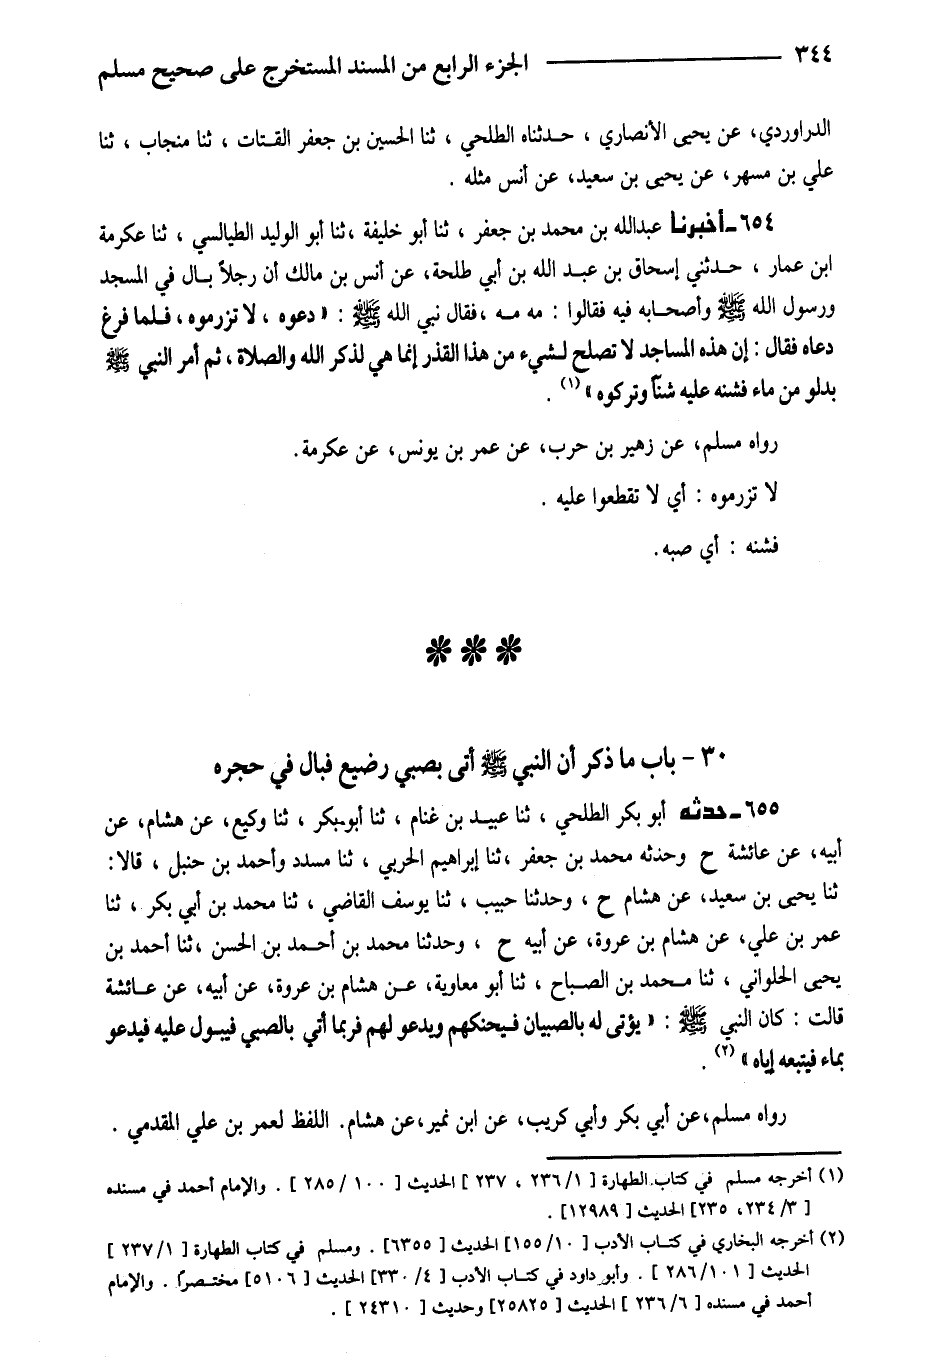 ٣٤٤ الجزء الرابع من المسند المستخرج على صحيح مسلم
الدراوردي، عن يحيى الأنصاري ، حدثناه الطلحي ، ثنا الحسين بن جعفر القتات ، ثنا منجاب ، ثنا
علي بن مسهر، عن يحيى بن سعيد، عن أنس مثله .
٦٥٤ـ أخبرنا عبدالله بن محمد بن جعفر ، ثنا أبو خليفة ،ثنا أبو الوليد الطيالسي ، ثنا عكرمة
ابن عمار ، حدثني إسحاق بن عبد الله بن أبي طلحة، عن أنس بن مالك أن رجلاً بال في المسجد
ورسول الله ﷺ وأصحابه فيه فقالوا : مه مه ،فقال نبي الله ﷺ : « دعوه ، لا تزرموه ، فلما فرغ
دعاه فقال : إن هذه المساجد لا تصلح لشيء من هذا القذر إنما هي لذكر الله والصلاة ، ثم أمر النبي ﷺ
بدلو من ماء فشنه عليه شنّاً وتركوه » (١) .
رواه مسلم، عن زهير بن حرب، عن عمر بن يونس، عن عكرمة.
لا تزرموه : أي لا تقطعوا عليه .
فشنه : أي صبه.
٣٠ - باب ما ذكر أن النبي ﷺ أتى بصبي رضيع فبال في حجره
٦٥٥ـ حدثه أبو بكر الطلحي ، ثنا عبيد بن غنام ، ثنا أبو بكر ، ثنا وكيع، عن هشام، عن
أبيه، عن عائشة ح وحدثه محمد بن جعفر ،ثنا إبراهيم الحربي ، ثنا مسدد وأحمد بن حنبل ، قالا:
ثنا يحيى بن سعيد، عن هشام ح ، وحدثنا حبيب ، ثنا يوسف القاضي ، ثنا محمد بن أبي بكر ، ثنا
عمر بن علي، عن هشام بن عروة، عن أبيه ح ، وحدثنا محمد بن أحمد بن الحسن ،ثنا أحمد بن
يحيى الحلواني ، ثنا محمد بن الصباح ، ثنا أبو معاوية، عن هشام بن عروة، عن أبيه، عن عائشة
قالت : كان النبي ﷺ : « يؤتى له بالصبيان فيحنكهم ويدعو لهم فربما أتي بالصبي فيبول عليه فيدعو
بماء فيتبعه إياه » (٢) .
رواه مسلم،عن أبي بكر وأبي كريب، عن ابن نمير،عن هشام. اللفظ لعمر بن علي المقدمي .
(١) أخرجه مسلم في كتاب الطهارة [ ١/ ٢٣٦ ، ٢٣٧ ] الحديث [ ١٠٠ / ٢٨٥ ] . والإمام أحمد في مسنده
[ ٣/ ٢٣٤، ٢٣٥] الحديث [ ١٢٩٨٩] .
(٢) أخرجه البخاري في كتاب الأدب [ ١٠/ ١٥٥] الحديث [ ٦٣٥٥] . ومسلم في كتاب الطهارة [ ١/ ٢٣٧ ]
الحديث [ ١٠١/ ٢٨٦ ] . وأبو داود في كتاب الأدب [ ٤/ ٣٣٠] الحديث [ ٥١٠٦] مختصراً . والإمام
أحمد في مسنده [ ٦/ ٢٣٦ ] الحديث [ ٢٥٨٢٥] وحديث [ ٢٤٣١٠ ] .